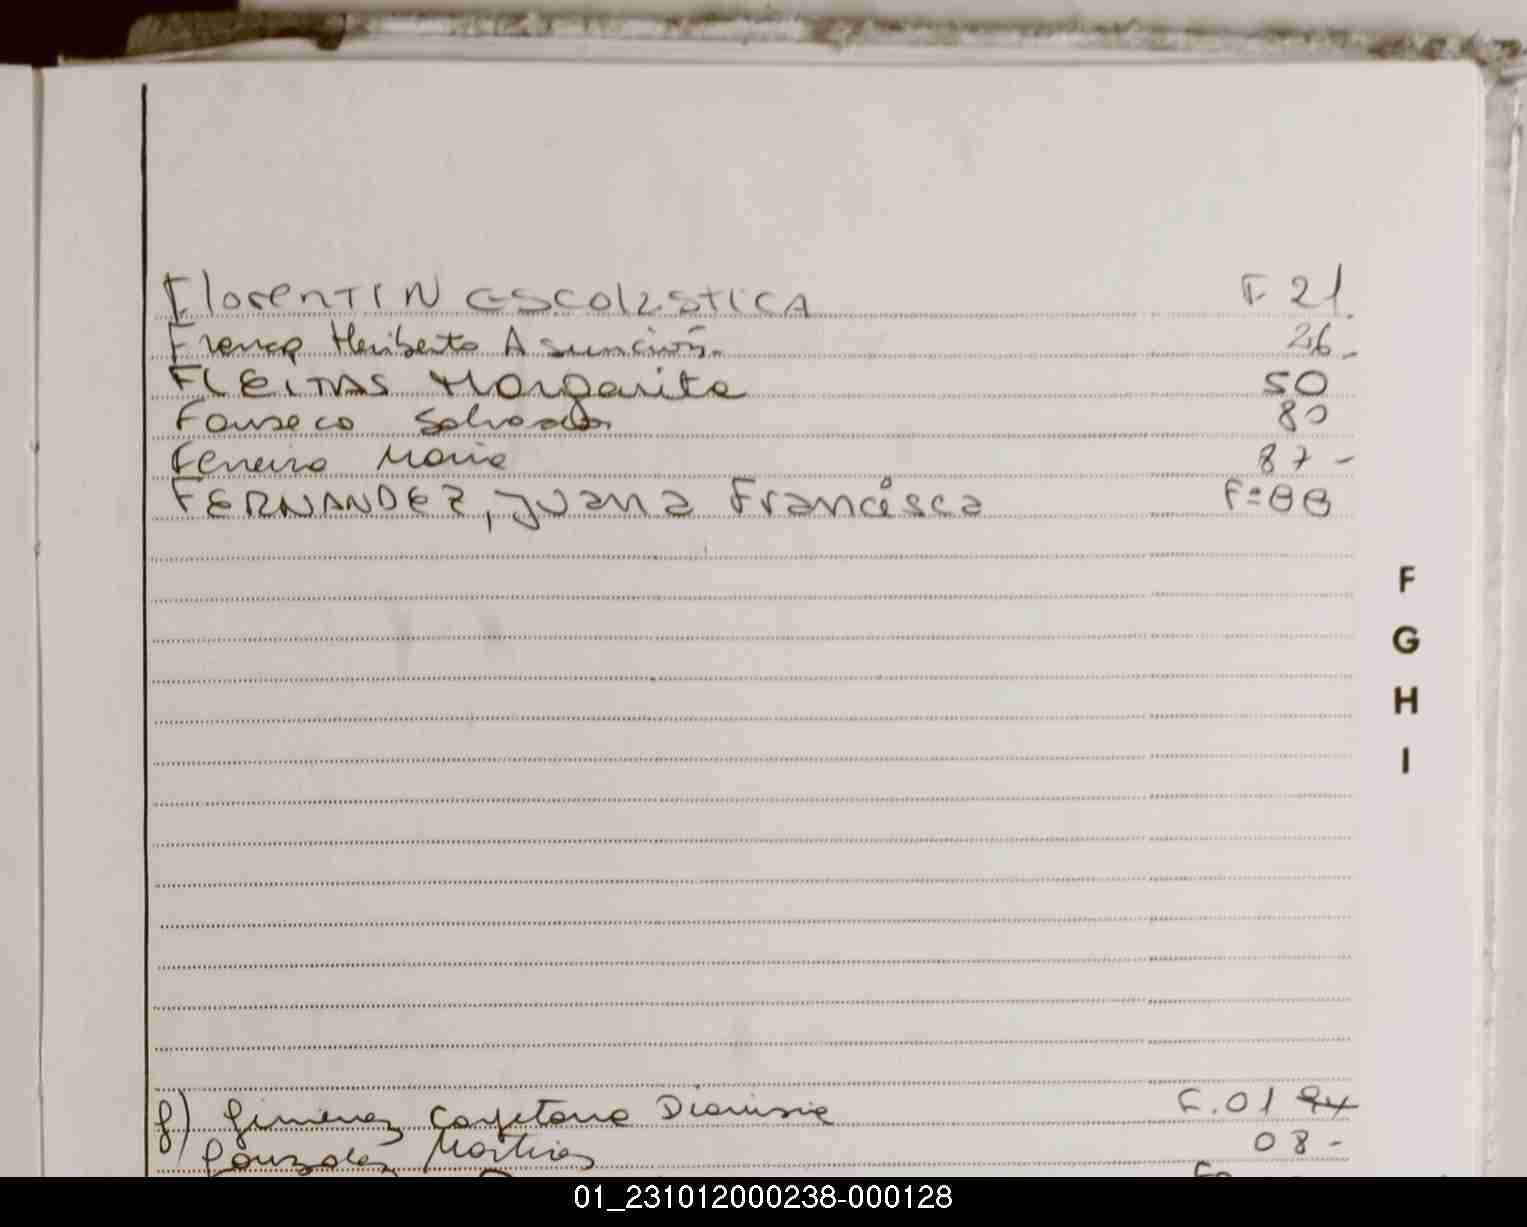 FlorenTIN ESCOLástiCA F 21
Franco Heriberto Asunción. 26-
FLEITAS Margarita 50
Fonseca Salvador 80
Ferreira Maria 87-
FERNANDEZ, Juana Francisca F=88
F
G
H
I
g) Gimenez Cayetana Dionisia F.01
Gonzalez 08-
01_231012000238-000128